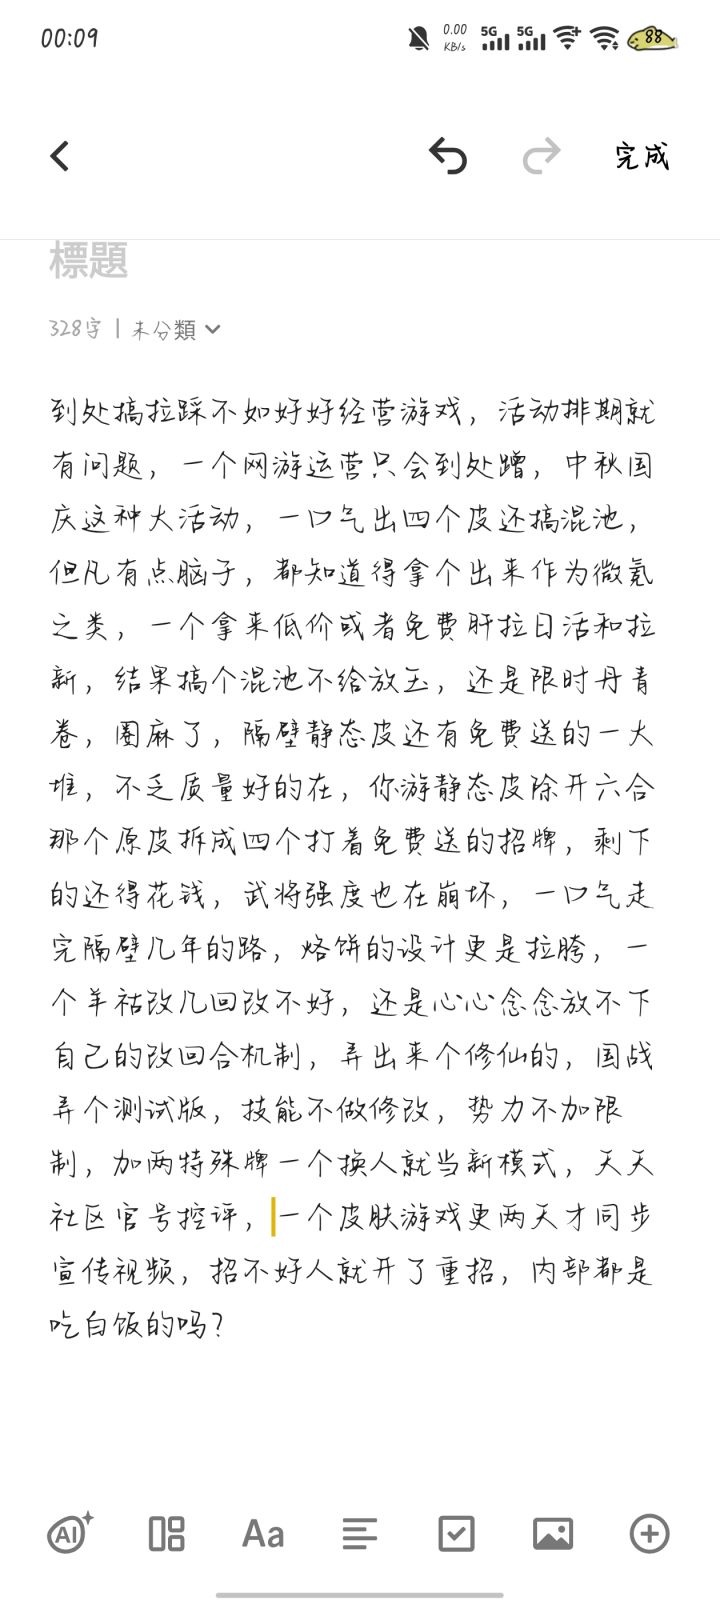 00:09
0.00
KB/s
5G
5G
88
完成
標題
328字 | 未分類
到处搞拉踩不如好好经营游戏，活动排期就
有问题，一个网游运营只会到处蹭，中秋国
庆这种大活动，一口气出四个皮还搞混池，
但凡有点脑子，都知道得拿个出来作为微氪
之类，一个拿来低价或者免费肝拉日活和拉
新，结果搞个混池不给放玉，还是限时丹青
卷，圈麻了，隔壁静态皮还有免费送的一大
堆，不乏质量好的在，你游静态皮除开六合
那个原皮拆成四个打着免费送的招牌，剩下
的还得花钱，武将强度也在崩坏，一口气走
完隔壁几年的路，烙饼的设计更是拉胯，一
个羊祜改几回改不好，还是心心念念放不下
自己的改回合机制，弄出来个修仙的，国战
弄个测试版，技能不做修改，势力不加限
制，加两特殊牌一个换人就当新模式，天天
社区官号控评，一个皮肤游戏更两天才同步
宣传视频，招不好人就开了重招，内部都是
吃白饭的吗？
AI
Aa